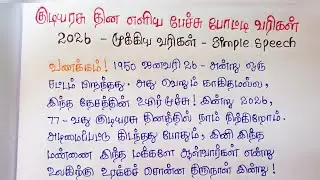 குடியரசு தின எளிய பேச்சு போட்டி வரிகள்
2026 - முக்கிய வரிகள் - Simple Speech
வணக்கம்! 1950 ஜனவரி 26 - அன்று ஒரு
சட்டம் பிறந்தது. அது வெறும் காகிதமல்ல,
இந்த தேசத்தின் உயிர் மூச்சு! இன்று 2026,
77-வது குடியரசு தினத்தில் நாம் நிற்கிறோம்.
அடிமைப்பட்டு கிடந்தது போதும், இனி இந்த
மண்ணை இந்த மக்களே ஆள்வார்கள் என்று
உலகிற்கு உரக்கச் சொன்ன திருநாள் இன்று!